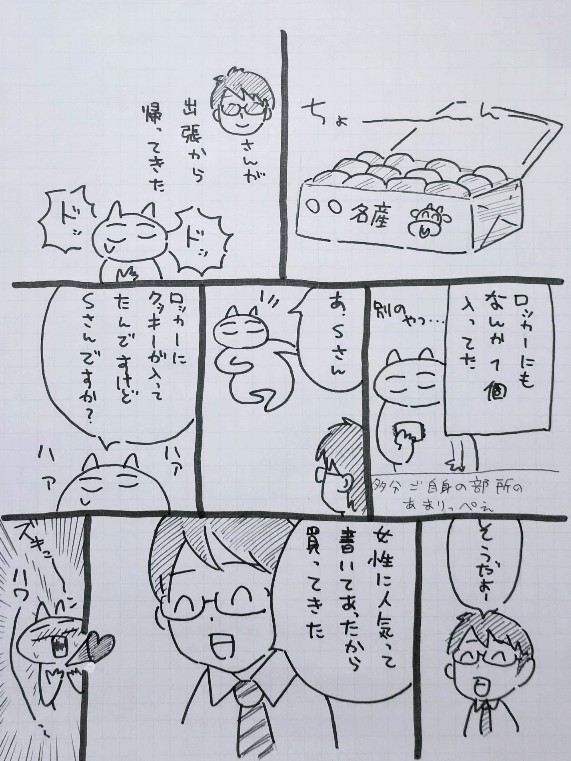 ちょーん
名産
さんが
出張から
帰ってきた
ドッ
ドッ
ロッカーにも
なんか1個
入ってた
別のやつ…
多分ご自身の部所の
あまりっぺぇ
あ、Sさん
ロッカーに
クッキーが入って
たんですけど
Sさんですか?
ハァ
ハァ
そうだよー
女性に人気って
書いてあったから
買ってきた
ズキューン
ハワ